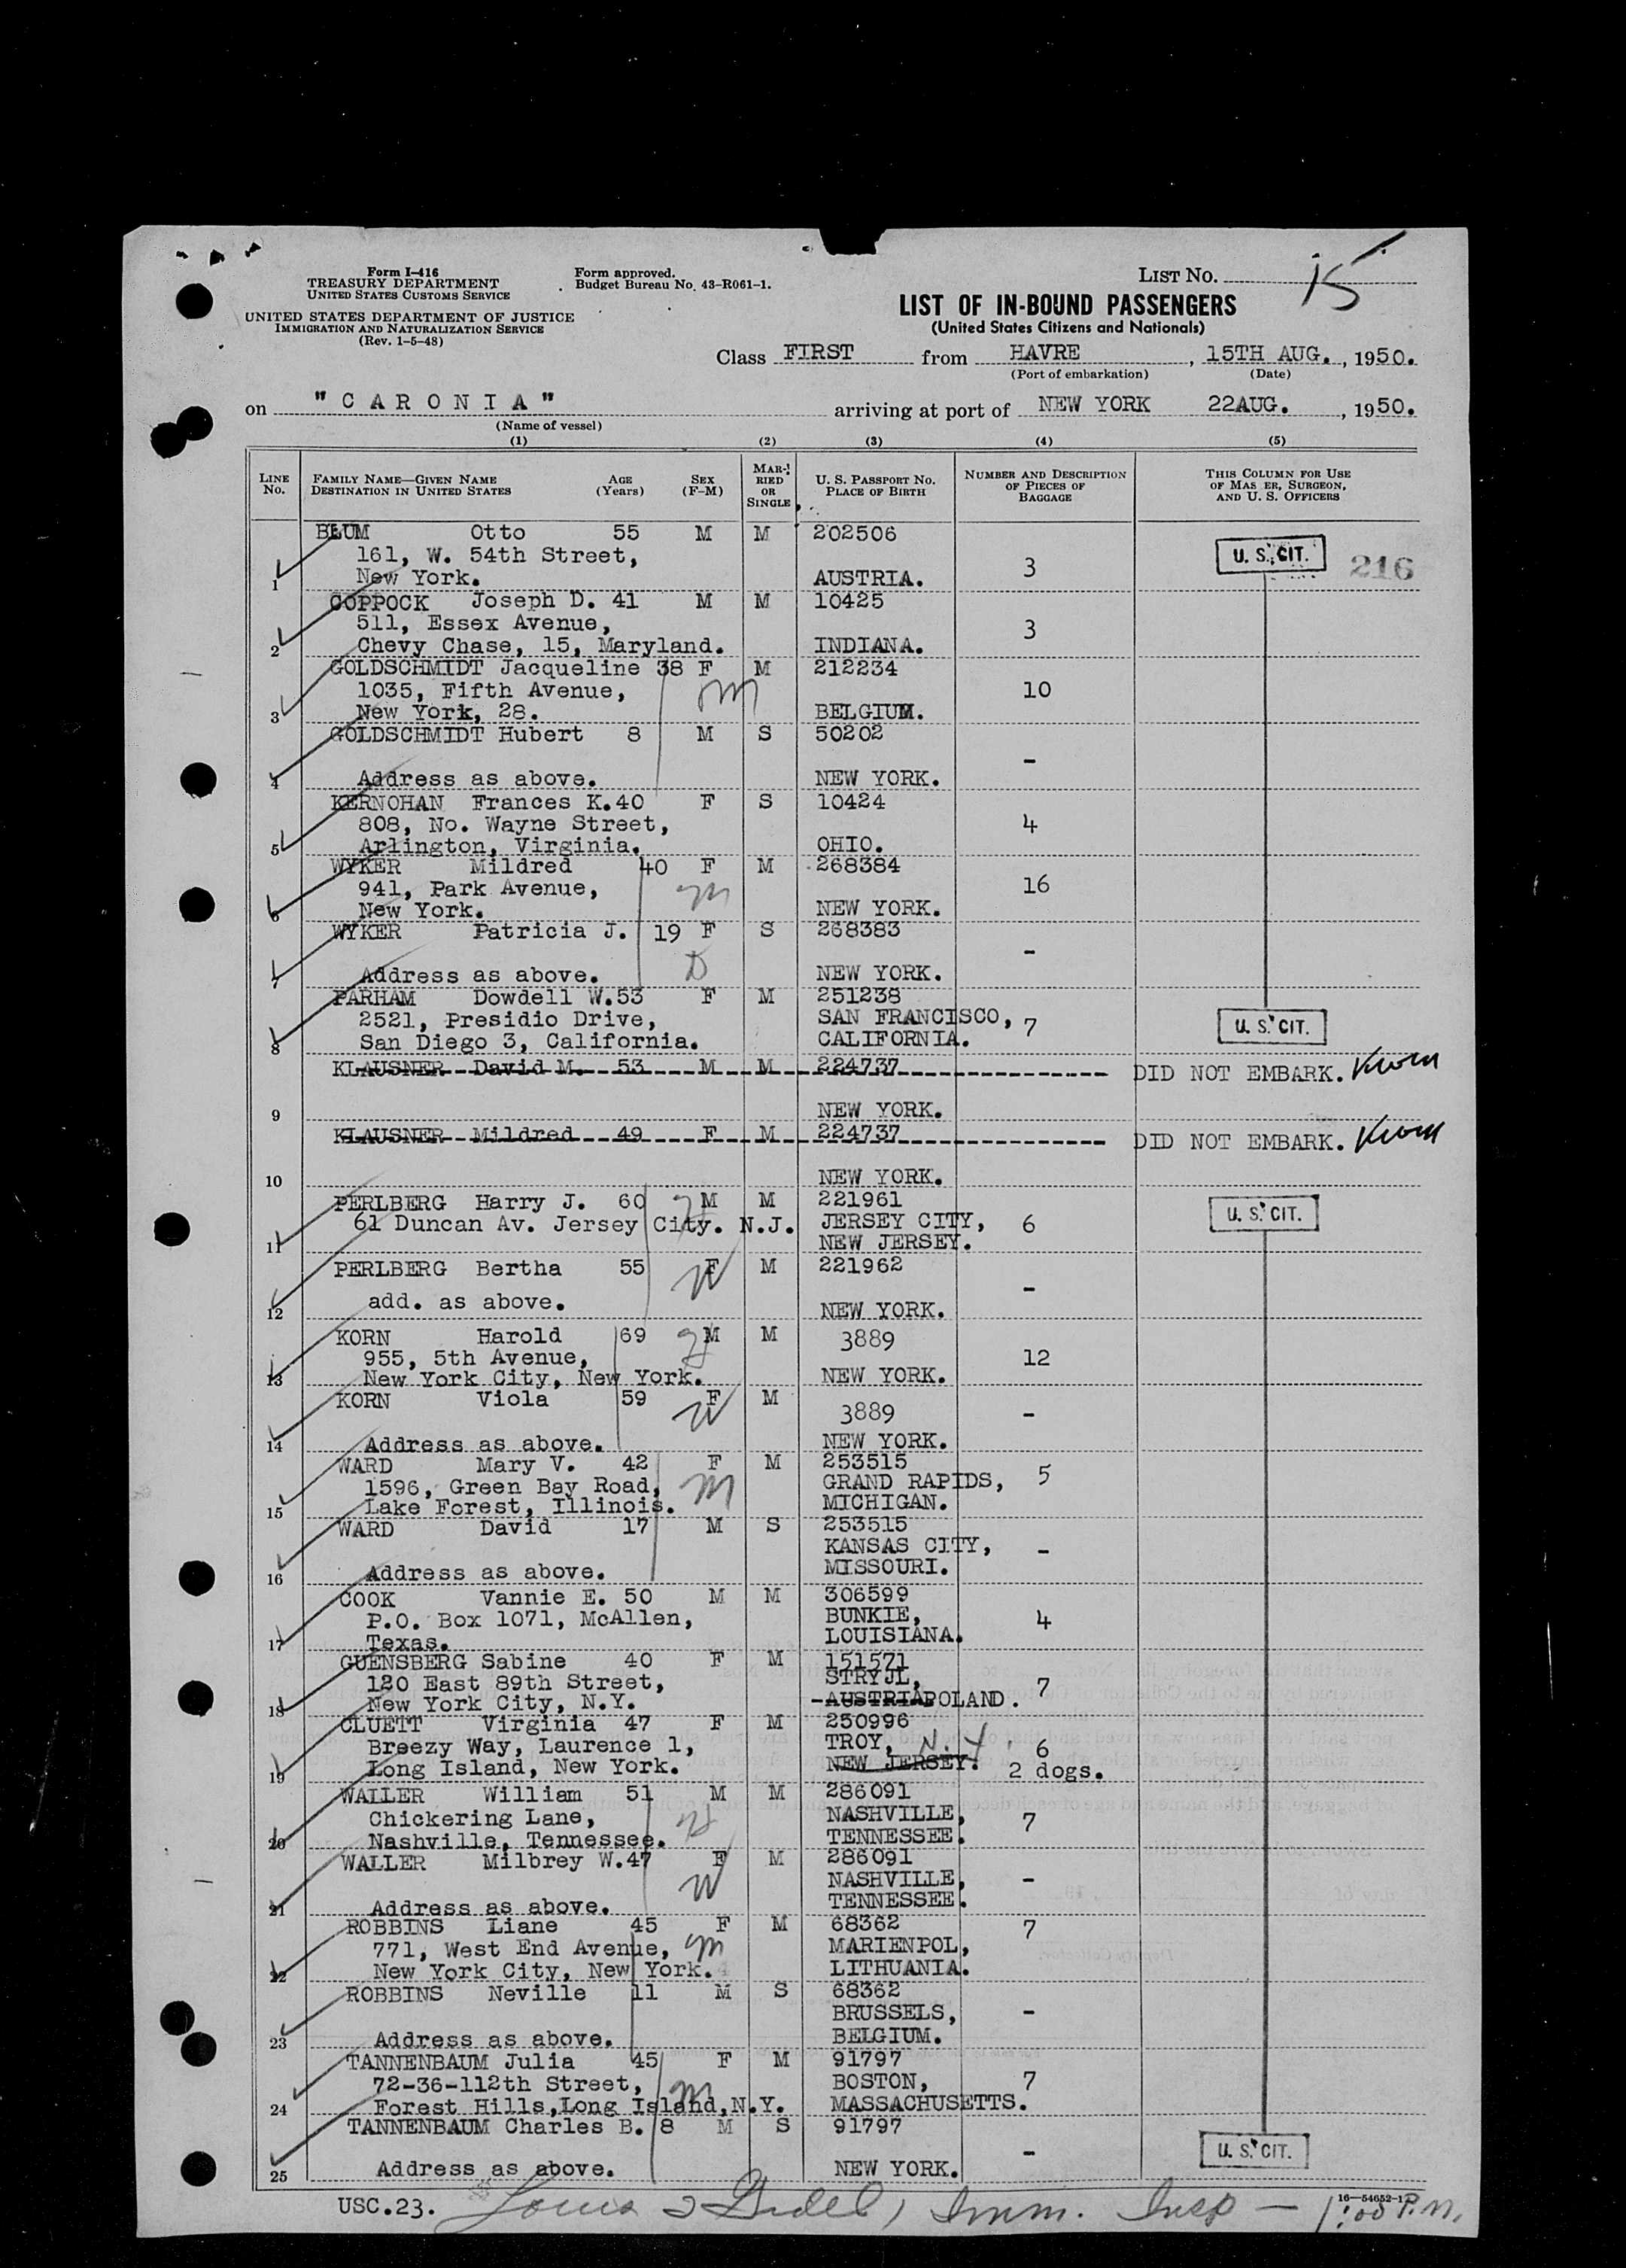 Form I-416
TREASURY DEPARTMENT
UNITED STATES CUSTOMS SERVICE
UNITED STATES DEPARTMENT OF JUSTICE
IMMIGRATION AND NATURALIZATION SERVICE
(Rev. 1-5-48)
Form approved.
Budget Bureau No. 43-R061-1.
LIST NO. 15
LIST OF IN-BOUND PASSENGERS
(United States Citizens and Nationals)
Class FIRST from HAVRE, 15TH AUG., 1950.
(Port of embarkation) (Date)
on "CARONIA" arriving at port of NEW YORK 22AUG., 1950.
(Name of vessel)
(1) (2) (3) (4) (5)
LINE NO. FAMILY NAME—GIVEN NAME DESTINATION IN UNITED STATES AGE (Years) SEX (F-M) MARRIED OR SINGLE U. S. PASSPORT NO. PLACE OF BIRTH NUMBER AND DESCRIPTION OF PIECES OF BAGGAGE THIS COLUMN FOR USE OF MAS ER, SURGEON, AND U. S. OFFICERS
BLUM Otto 55 M M 202506
161, W. 54th Street, 3 U. S. CIT. 216
1 New York. AUSTRIA.
COPPOCK Joseph D. 41 M M 10425
511, Essex Avenue, 3
2 Chevy Chase, 15, Maryland. INDIANA.
GOLDSCHMIDT Jacqueline 38 F M 212234
1035, Fifth Avenue, m 10
3 New York, 28. BELGIUM.
GOLDSCHMIDT Hubert 8 M S 50202
-
4 Address as above. NEW YORK.
KERNOHAN Frances K. 40 F S 10424
808, No. Wayne Street, 4
5 Arlington, Virginia. OHIO.
WYKER Mildred 40 F M 268384
941, Park Avenue, m 16
6 New York. NEW YORK.
WYKER Patricia J. 19 F S 268383
D -
7 Address as above. NEW YORK.
PARHAM Dowdell W. 53 F M 251238
2521, Presidio Drive, SAN FRANCISCO, 7 U. S. CIT.
8 San Diego 3, California. CALIFORNIA.
KLAUSNER David M. 53 M M 224737 DID NOT EMBARK.
9 NEW YORK.
KLAUSNER Mildred 49 F M 224737 DID NOT EMBARK.
10 NEW YORK.
PERLBERG Harry J. 60 M M 221961
61 Duncan Av. Jersey City. N.J. JERSEY CITY, 6 U. S. CIT.
11 NEW JERSEY.
PERLBERG Bertha 55 F M 221962
W -
12 add. as above. NEW YORK.
KORN Harold 69 M M 3889
955, 5th Avenue, 12
13 New York City, New York. NEW YORK.
KORN Viola 59 F M 3889
W -
14 Address as above. NEW YORK.
WARD Mary V. 42 F M 253515
1596, Green Bay Road, m GRAND RAPIDS, 5
15 Lake Forest, Illinois. MICHIGAN.
WARD David 17 M S 253515
KANSAS CITY, -
16 Address as above. MISSOURI.
COOK Vannie E. 50 M M 306599
P.O. Box 1071, McAllen, BUNKIE, 4
17 Texas. LOUISIANA.
GUENSBERG Sabine 40 F M 151571
120 East 89th Street, STRYJL, 7
18 New York City, N.Y. AUSTRIA POLAND.
CLUETT Virginia 47 F M 250996
Breezy Way, Laurence 1, TROY, N.Y. 6
19 Long Island, New York. NEW JERSEY. 2 dogs.
WALLER William 51 M M 286091
Chickering Lane, NASHVILLE, 7
20 Nashville, Tennessee. TENNESSEE.
WALLER Milbrey W. 47 F M 286091
W NASHVILLE, -
21 Address as above. TENNESSEE.
ROBBINS Liane 45 F M 68362 7
771, West End Avenue, m MARIENPOL,
22 New York City, New York. LITHUANIA.
ROBBINS Neville 11 M S 68362
BRUSSELS, -
23 Address as above. BELGIUM.
TANNENBAUM Julia 45 F M 91797
72-36-112th Street, m BOSTON, 7
24 Forest Hills, Long Island, N.Y. MASSACHUSETTS.
TANNENBAUM Charles B. 8 M S 91797
- U. S. CIT.
25 Address as above. NEW YORK.
16—54652-1
USC.23. Louis Imm. Insp — 1:00 P.M.